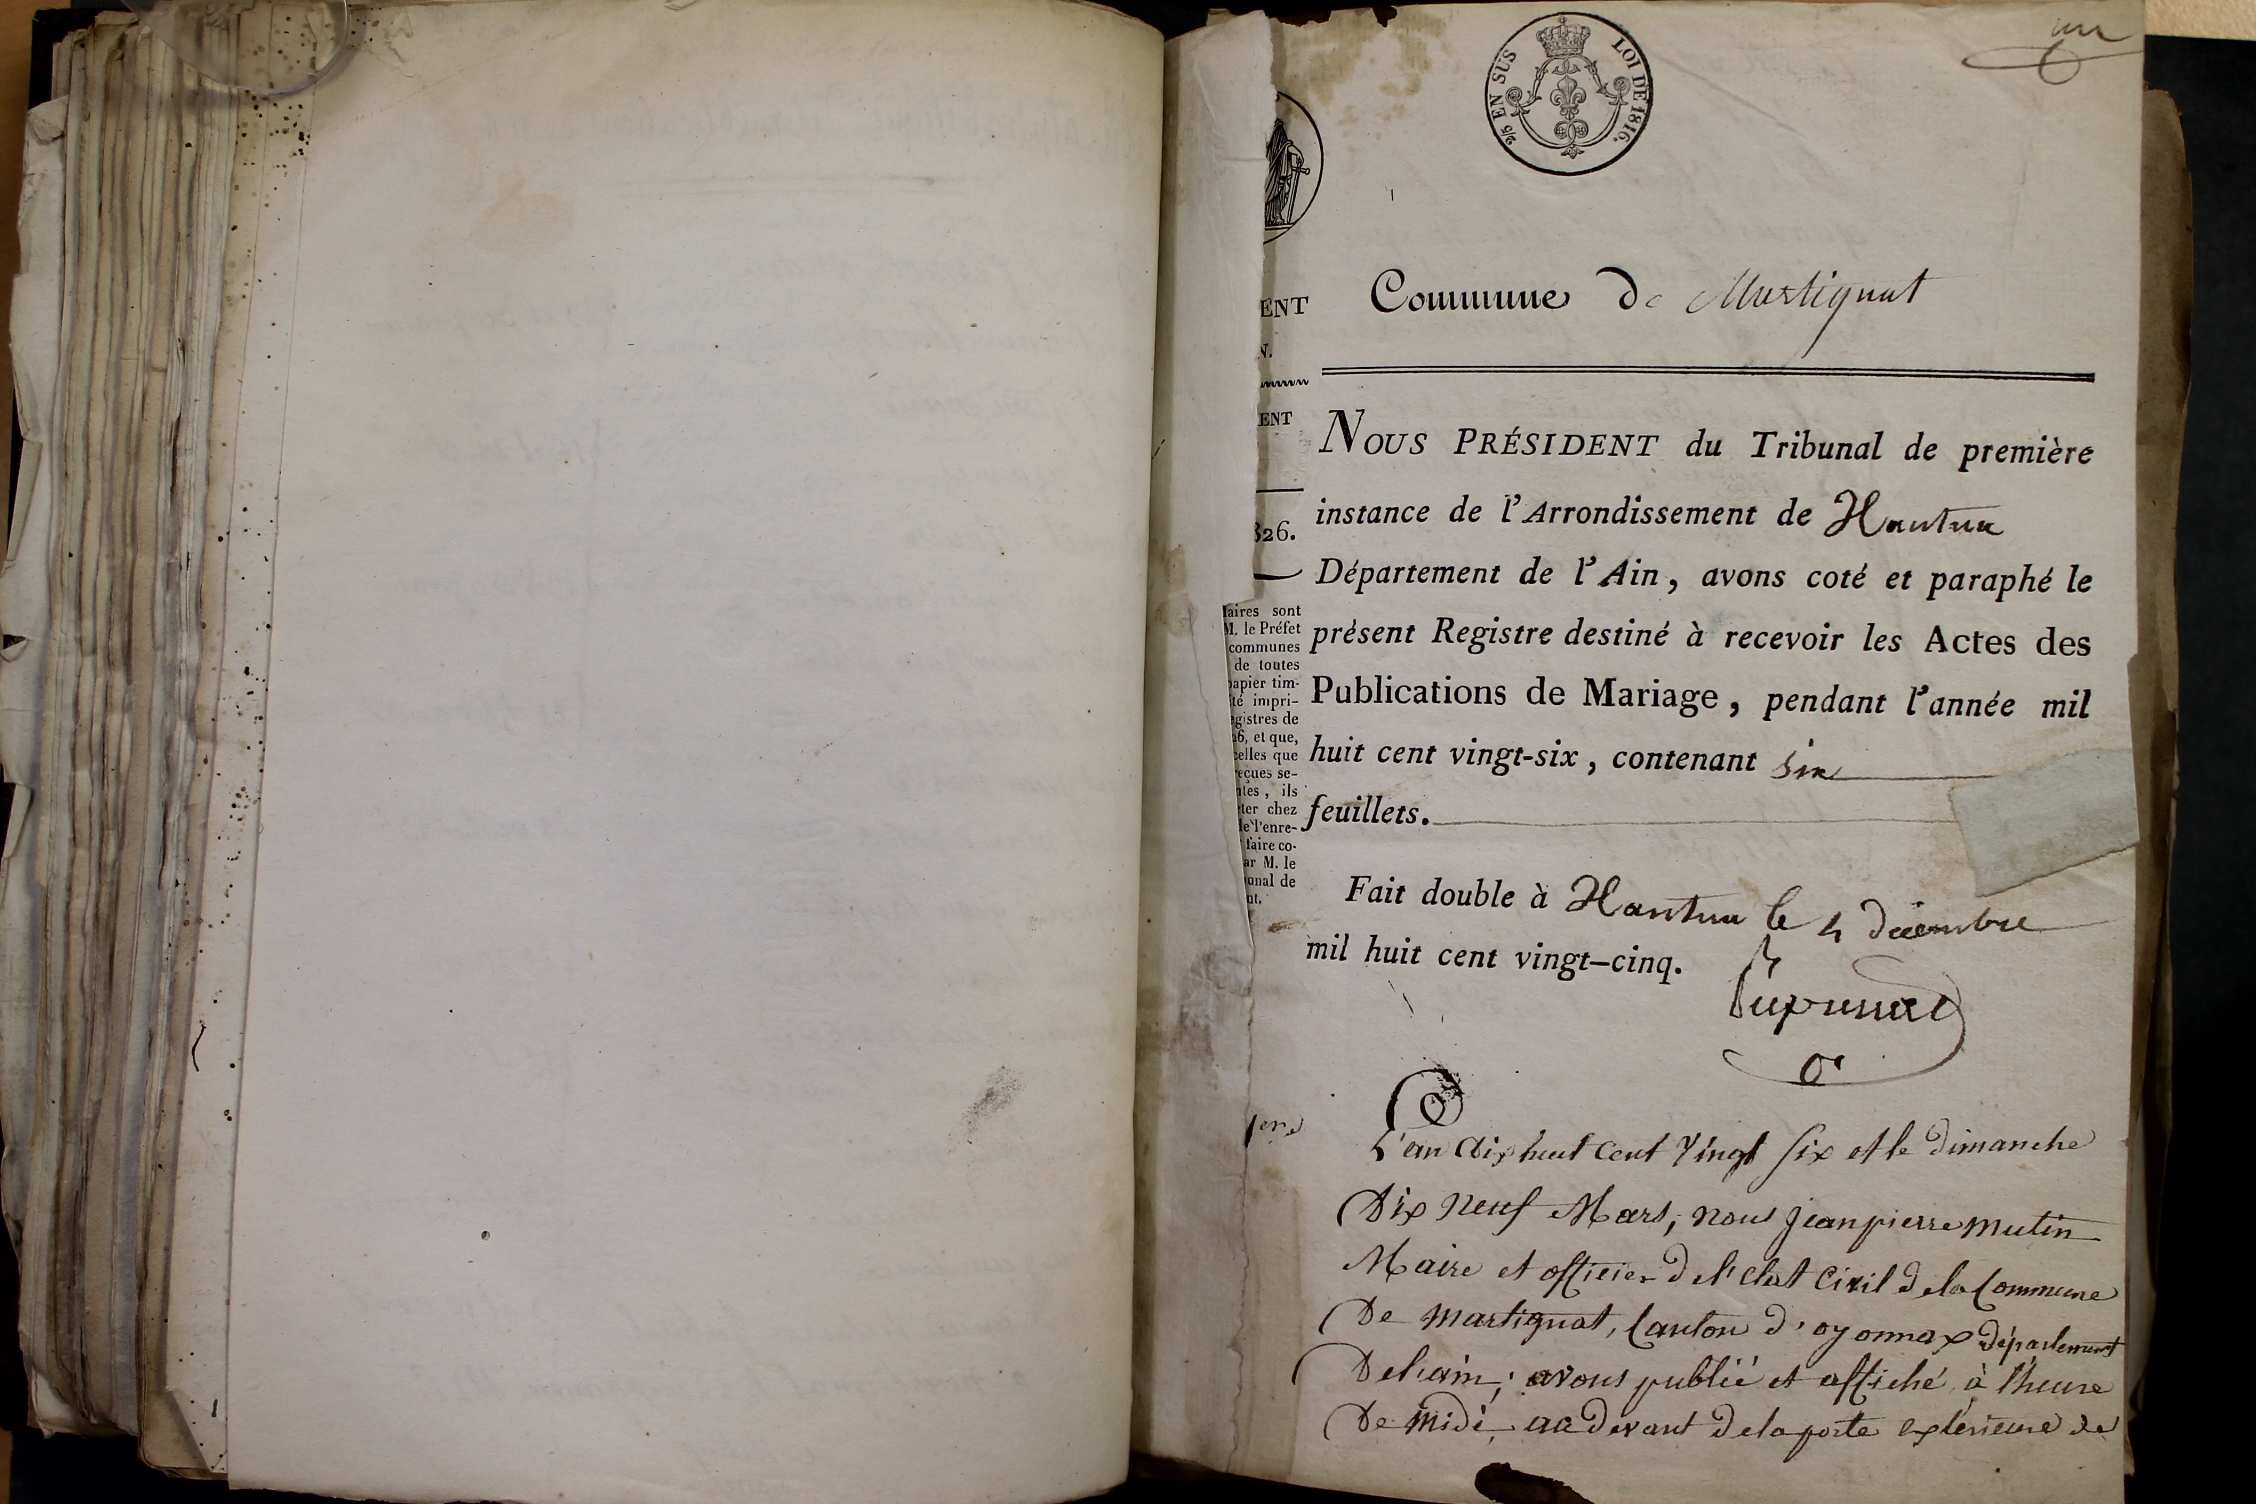 un
2/5 EN SUS
LOI DE 1816.
Commune de Martignat
ENT
N.
ENT
826.
NOUS PRÉSIDENT du Tribunal de première
instance de l'Arrondissement de Nantua
Département de l'Ain, avons coté et paraphé le
présent Registre destiné à recevoir les Actes des
Publications de Mariage, pendant l'année mil
huit cent vingt-six, contenant six
feuillets.
laires sont
M. le Préfet
communes
de toutes
papier tim-
té impri-
egistres de
26, et que,
celles que
reçues se-
ntes, ils
eter chez
de l'enre-
faire co-
ar M. le
unal de
nt.
Fait double à Nantua le 4 décembre
mil huit cent vingt-cinq.
1ere
L'an dix huit cent vingt six et le dimanche
Dix neuf Mars, nous jean pierre mutin
Maire et officier de l'etat Civil de la Commune
De martignat, Canton d'oyonnax département
De l'ain; avons publié et affiché à l'heure
De midi, au devant de la porte extérieure de